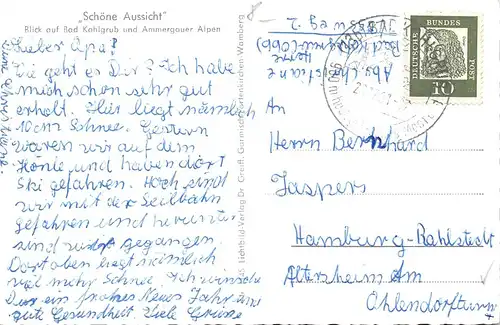 „Schöne Aussicht"
Blick auf Bad Kohlgrub und Ammergauer Alpen
Lieber Opa!
Wie geht es Dir? Ich habe
mich schon sehr gut
erholt. Hier liegt nämlich
10cm Schnee. Gestern
waren wir auf dem
Hörnle und haben dort
Ski gefahren. Hoch sind
wir mit der Seilbahn
gefahren und herunter
sind wir gegangen.
Dort oben liegt nämlich
viel mehr Schnee. Ich wünsche
Dir ein frohes Neues Jahr und
gute Gesundheit. Viele Grüsse
Lichtbild-Verlag Dr. Greiff, Garmisch-Partenkirchen-Wamberg
8-
Abs.
Bad Kohlgrub
DEUTSCHE
BUNDES
POST
10
An
Herrn Bernhard
Jaspers
Hamburg-Rahlstedt
Altersheim Am
Ohlendorffturm